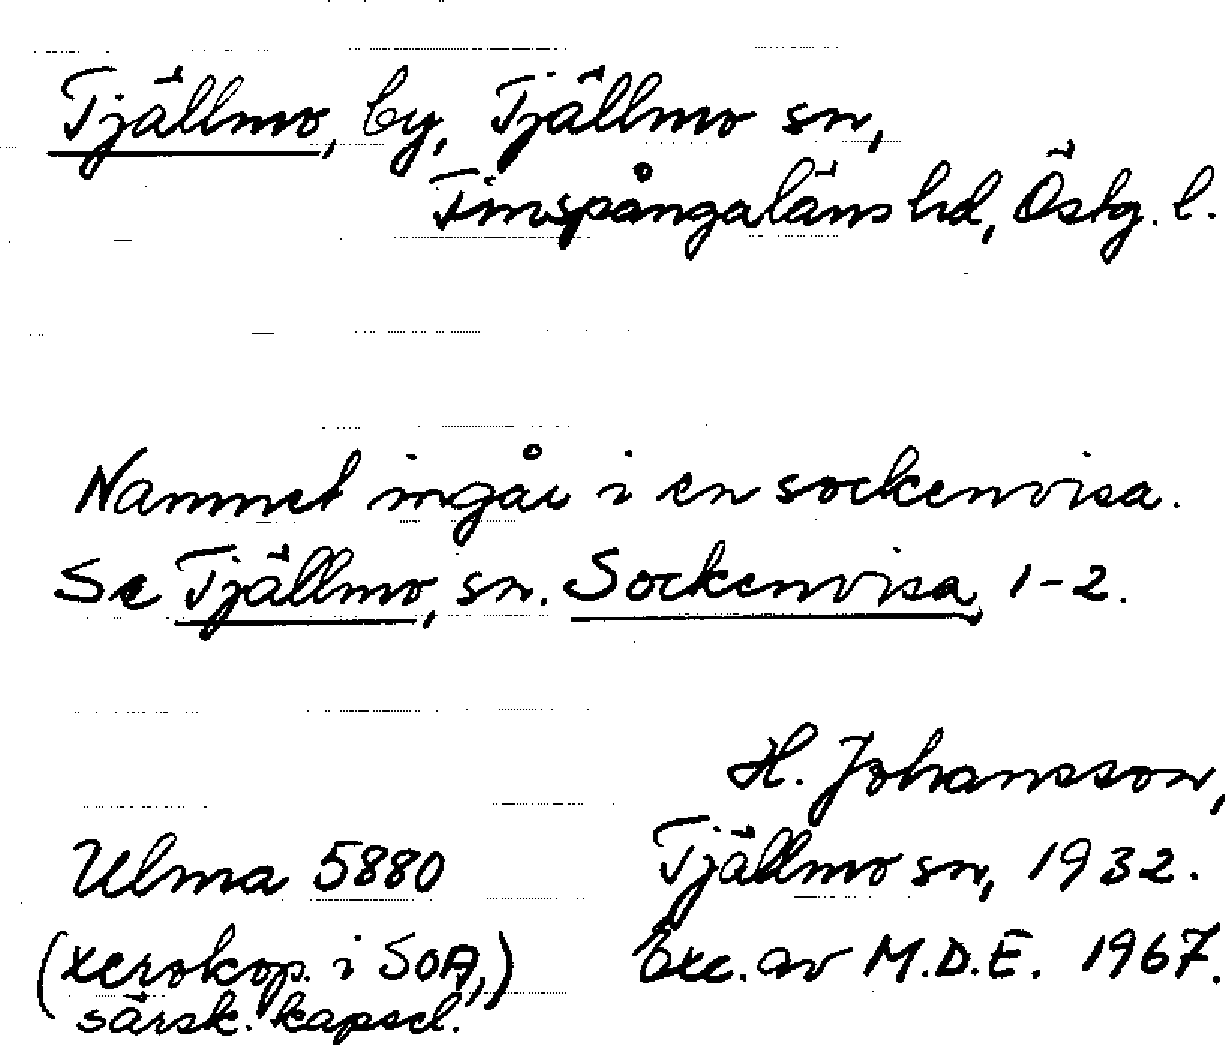 Tjällmo, by, Tjällmo sn,
Finspångaläns hd, Östg. l.
Namnet ingår i en sockenvisa.
Se Tjällmo, sn. Sockenvisa, 1-2.
H. Johansson,
Ulma 5880 Tjällmo sn, 1932.
(xerokop. i SOA, Exc. av M.D.E. 1967.
särsk. kapsel.)